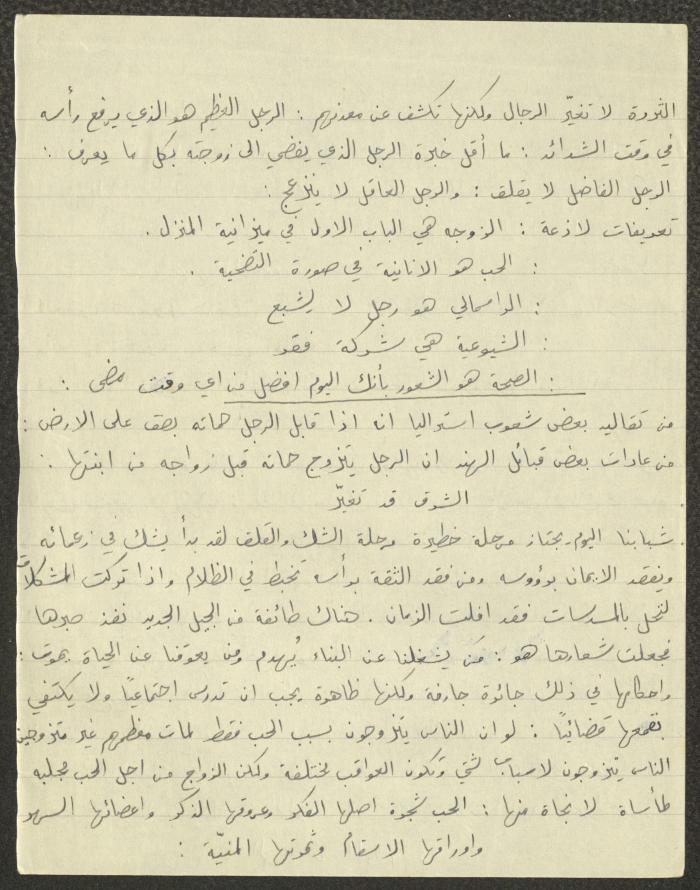 الثروة لا تغيّر الرجال ولكنها تكشف عن معدنهم : الرجل العظيم هو الذي يرفع رأسه
في وقت الشدائد : ما أقل خبرة الرجل الذي يفضي الى زوجته بكل ما يعرف :
الرجل الفاضل لا يقلق : والرجل العاقل لا ينزعج :
تعريفات لاذعة : الزوجه هي الباب الاول في ميزانية المنزل .
: الحب هو الانانية في صورة التضحية .
: الراسمالي هو رجل لا يشبع
: الشيوعية هي شركة فقر
: الصحة هو الشعور بأنك اليوم افضل من اي وقت مضى :
من تقاليد بعض شعوب استراليا انه اذا قابل الرجل حماته بصق على الارض :
من عادات بعض قبائل الهند ان الرجل يتزوج حماته قبل زواجه من ابنتها :
الشرق قد تغيّر
شبابنا اليوم يجتاز مرحلة خطيرة مرحلة الشك والقلق لقد بدأ يشك في زعمائه
ويفقد الايمان برؤوسه ومن فقد الثقة برأسه تخبط في الظلام واذا تركت المشكلات
لتحل بالمسدسات فقد افلت الزمان . هناك طائفة من الجيل الجديد نفذ صبرها
فجعلت شعارها هو : مَن يشغلنا عن البناء يُهدم ومن يعوقنا عن الحياة يموت :
واحكامها في ذلك جائرة جارفة ولكنها ظاهرة يجب ان تدرس اجتماعياً ولا يكتفي
بقمعها قضائياً : لو ان الناس يتزوجون بسبب الحب فقط لمات معظمهم غير متزوجين
الناس يتزوجون لاسباب شتى وتكون العواقب مختلفة ولكن الزواج من اجل الحب مجلبه
لمأساة لا نجاة منها : الحب شجرة اصلها الفكر وعروقها الذكر واغصانها السهر
واوراقها الاسقام وثمرتها المنيّة :